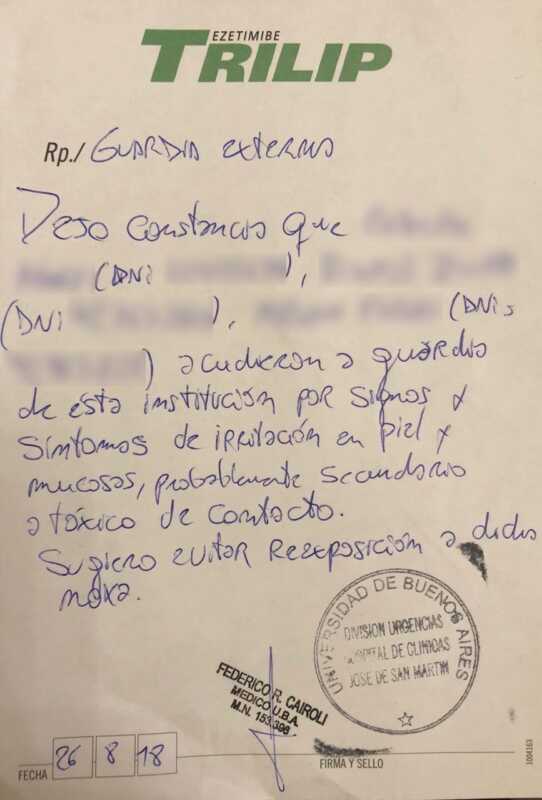 EZETIMIBE
TRILIP
Rp./ GUARDIA externa
Dejo constancia que
(DNI ),
(DNI ), (DNI:
) acudieron a guardia
de esta institución por signos y
síntomas de irritación en piel y
mucosas, probablemente secundario
a tóxico de contacto.
Sugiero evitar reexposición a dicha
noxa.
UNIVERSIDAD DE BUENOS AIRES
DIVISION URGENCIAS
HOSPITAL DE CLINICAS
JOSE DE SAN MARTIN
FEDERICO R. CAIROLI
MEDICO U.B.A.
M.N. 153.396
FECHA 26 8 18
FIRMA Y SELLO
1004163